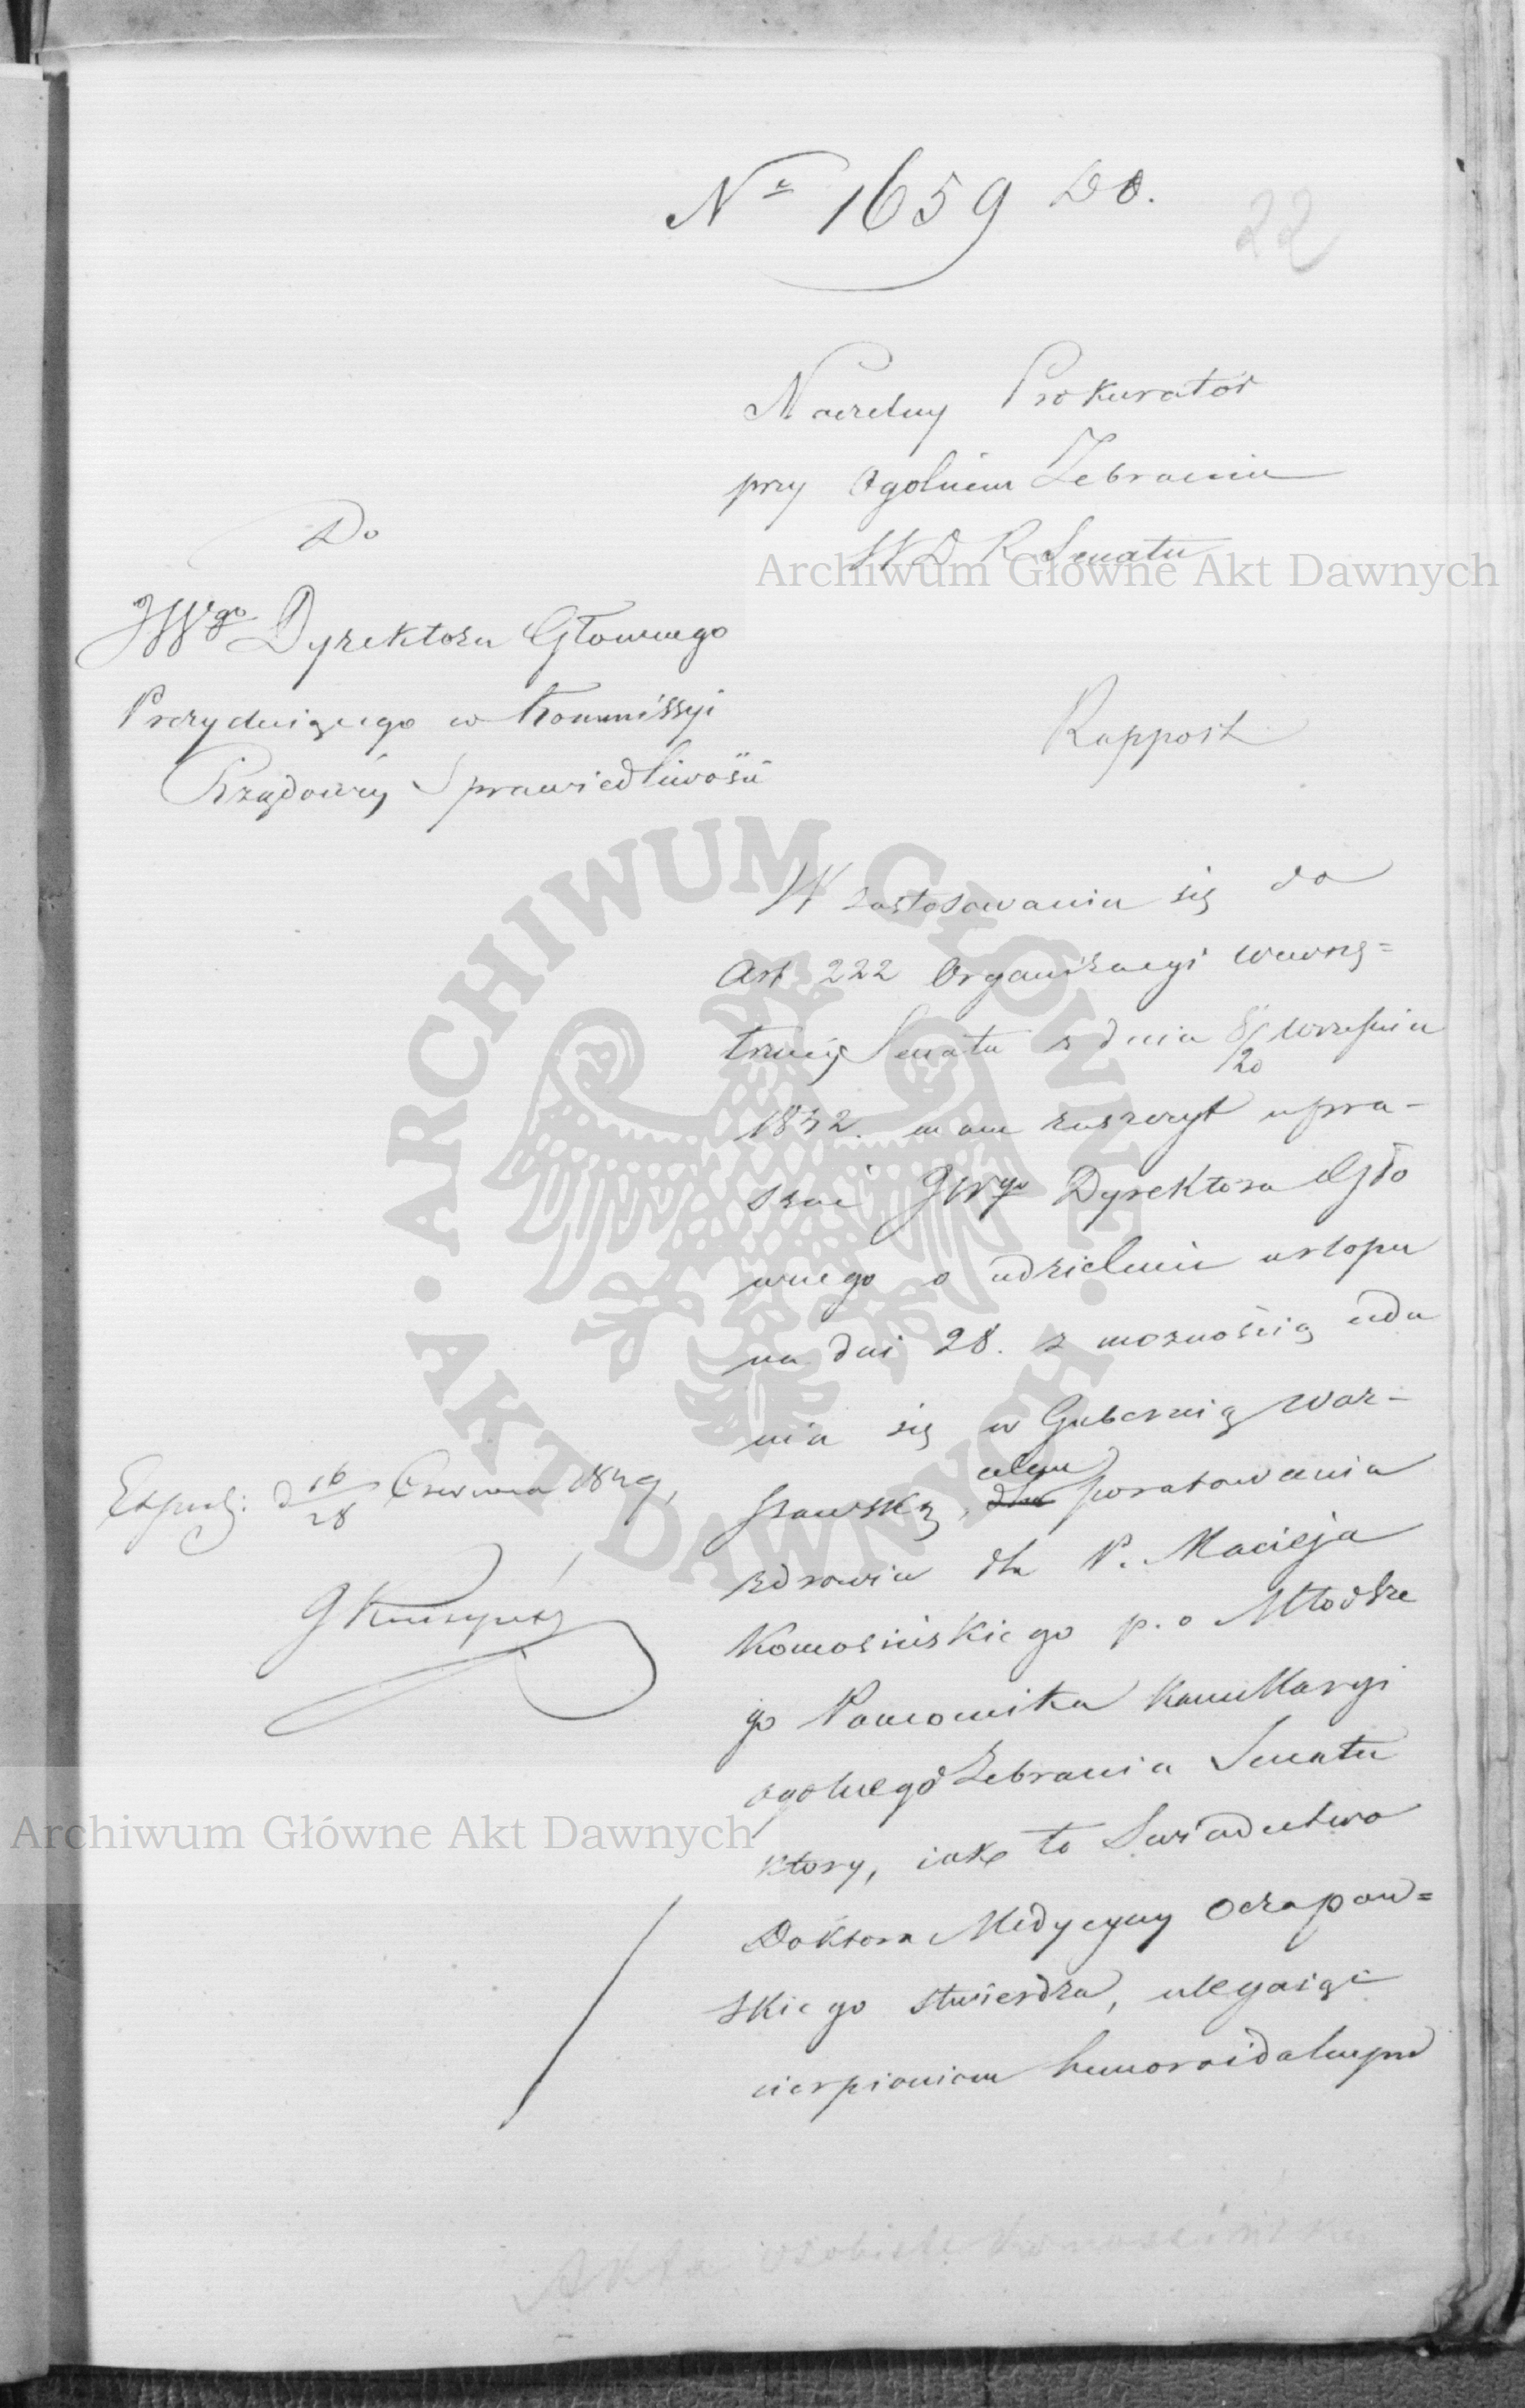 Nr 1659 DO.
22
Naczelny Prokurator
przy Ogolnem Zebraniu
W D R Senatu
Do
JWgo Dyrektora Głownego
Prezyduiącego w Kommissyi
Rządowey Sprawiedliwości
Rapport
W zastosowaniu się do
Art 222 Organizacyi wewnę=
trzney Senatu z dnia 8/20 Września
1842. mam zaszczyt upra-
szać JWgo Dyrektora Gło
wnego o udzielenie urlopu
na dni 28. z możnością uda
nia się w Gubernią War-
szawską, dla celem poratowania
zdrowia dla P. Macieja
Komosińskiego p. o Młodsze
go Pomocnika Kancellaryi
ogolnego Zebrania Senatu
ktory, iak to Swiadectwo
Doktora Medycyny Oczapow=
skiego stwierdza, ulegaiąc
cierpieniom hemoroidalnym
Exped: d 16/28 Czerwca 1849,
Akta osobiste Komosińskiego
Archiwum Główne Akt Dawnych
ARCHIWUM GŁÓWNE · AKT DAWNYCH ·
Archiwum Główne Akt Dawnych